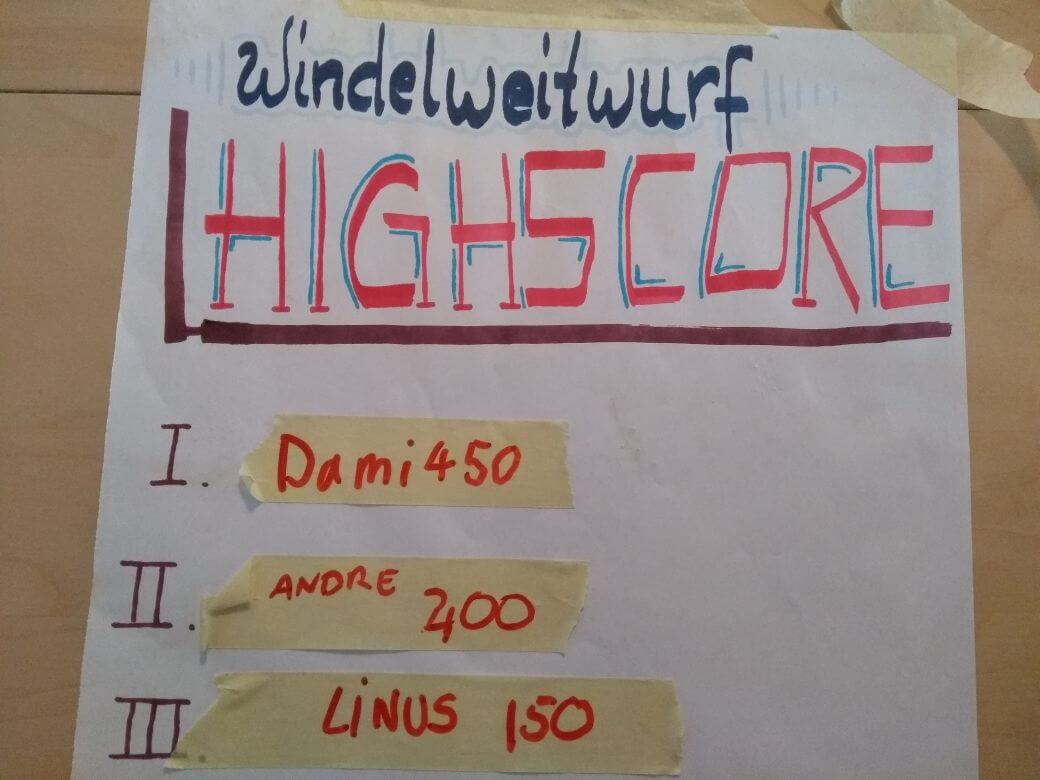 Windelweitwurf
HIGHSCORE
I. Dami 450
II. ANDRE 200
III. LiNUS 150